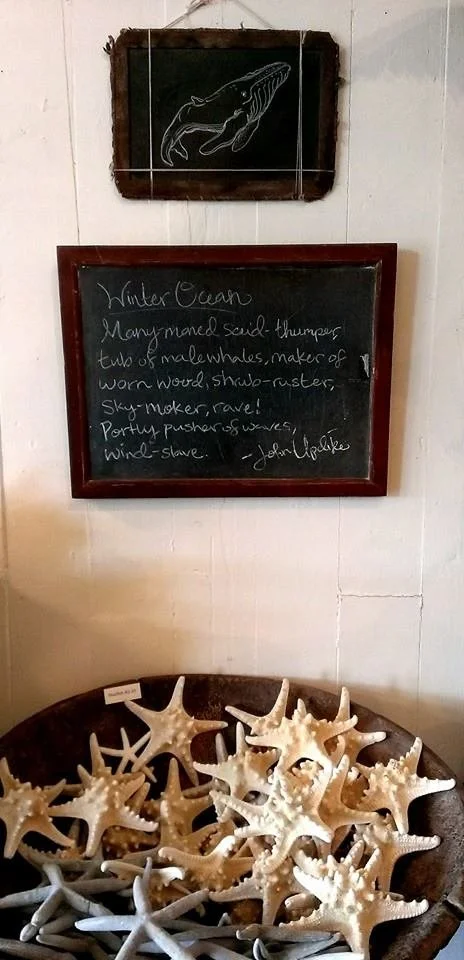 Winter Ocean
Many-maned scud-thumper,
tub of male whales, maker of
worn wood, shrub-ruster,
sky-mocker, rave!
Portly pusher of waves,
wind-slave. - John Updike